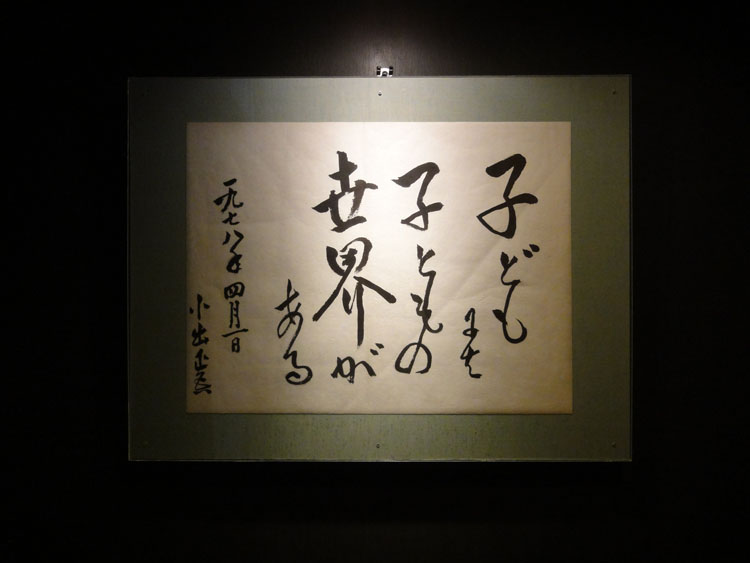 子ども
には
子ともの
世界が
ある
一九七八年四月一日
小出正吾